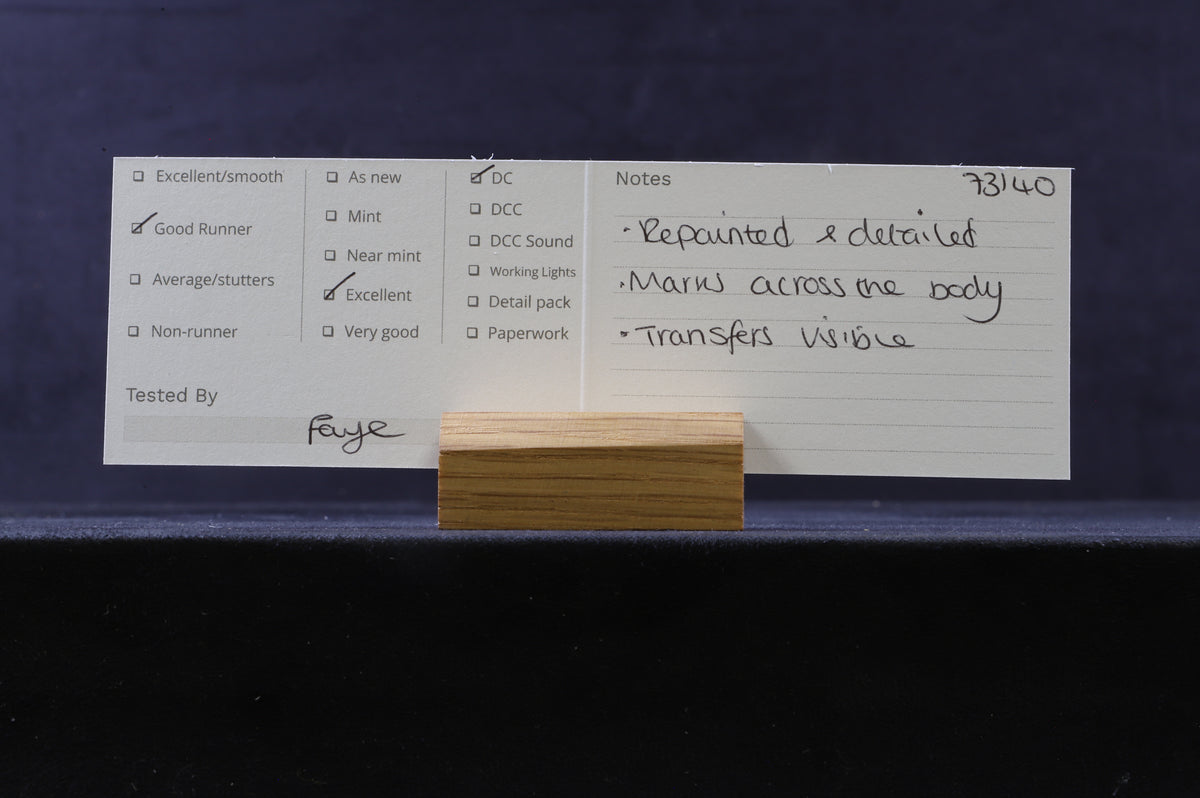 ☐ Excellent/smooth
☑ Good Runner
☐ Average/stutters
☐ Non-runner
☐ As new
☐ Mint
☐ Near mint
☑ Excellent
☐ Very good
☑ DC
☐ DCC
☐ DCC Sound
☐ Working Lights
☐ Detail pack
☐ Paperwork
Tested By
Faye
Notes
73140
· Repainted & detailed
· Marks across the body
· Transfers visible